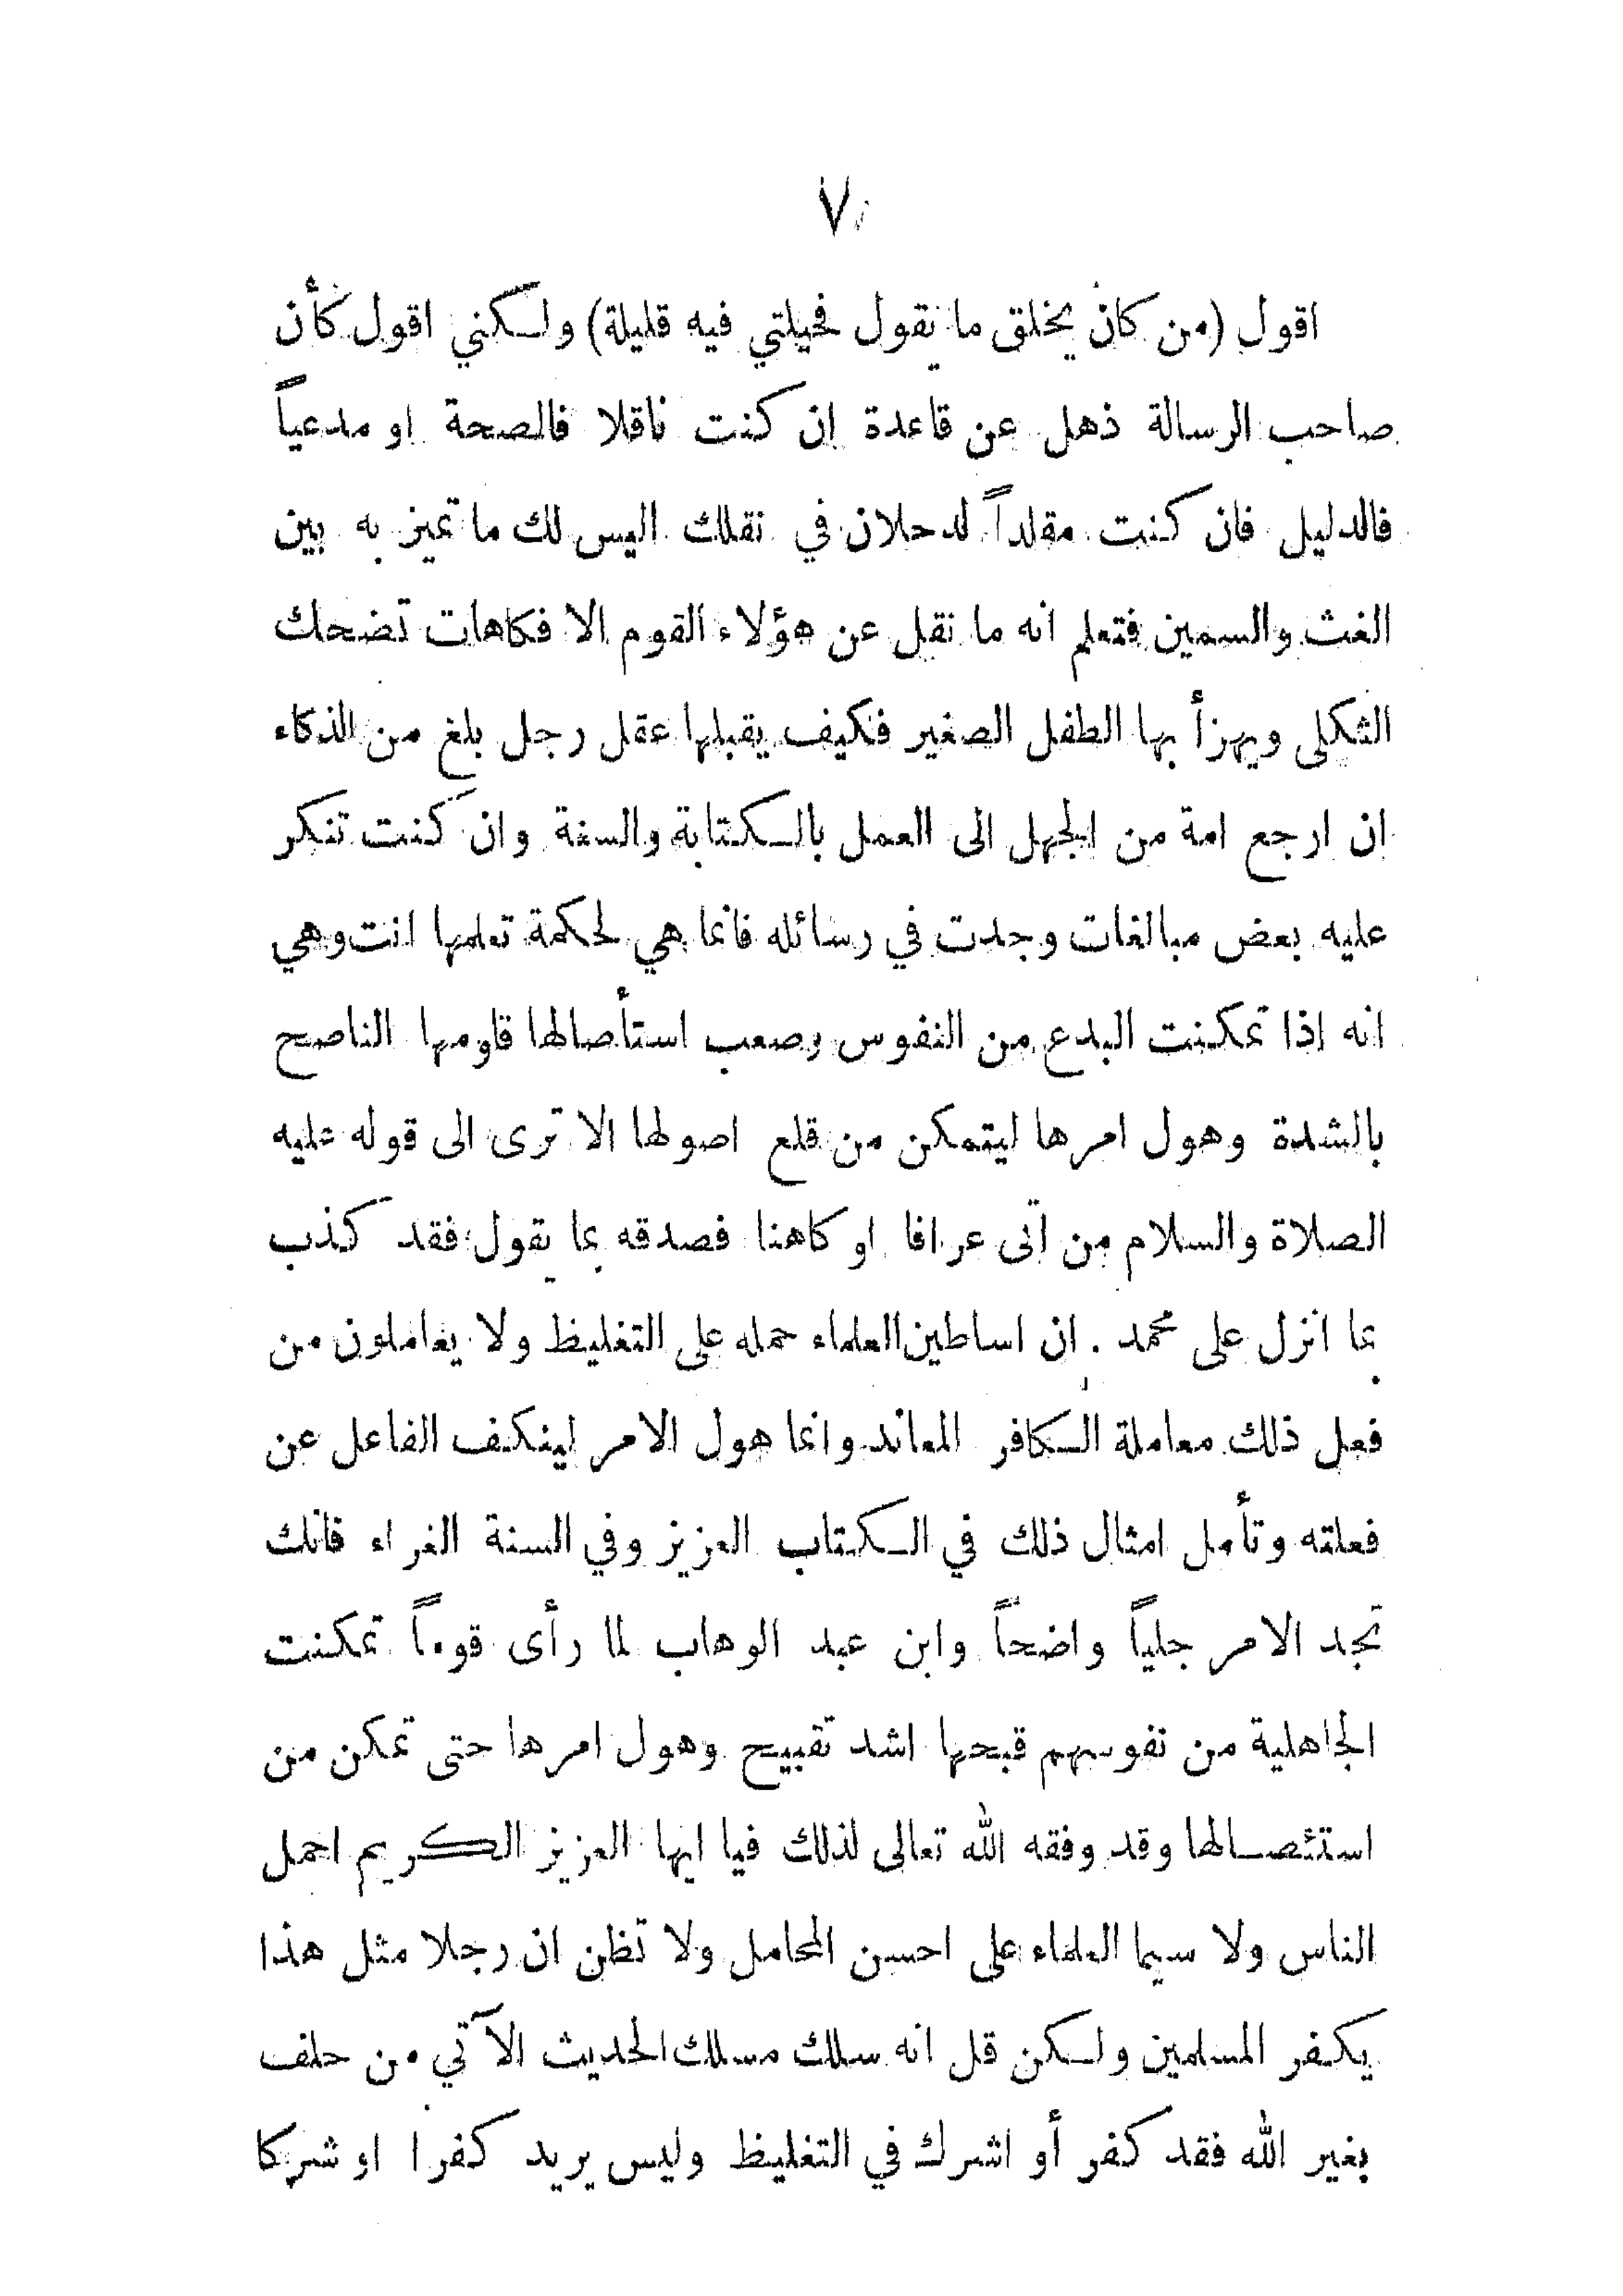 ٧
اقول (من كان يخلق ما يقول فحيلتي فيه قليلة) ولكني اقول كأن
صاحب الرسالة ذهل عن قاعدة ان كنت ناقلا فالصحة او مدعياً
فالدليل فان كنت مقلداً لدحلان في نقلك اليس لك ما تميز به بين
الغث والسمين فتعلم انه ما نقل عن هؤلاء القوم الا فكاهات تضحك
الثكلى ويهزأ بها الطفل الصغير فكيف يقبلها عقل رجل بلغ من الذكاء
ان ارجع امة من الجهل الى العمل بالكتابة والسنة وان كنت تنكر
عليه بعض مبالغات وجدت في رسائله فانما هي لحكمة تعلمها انت وهي
انه اذا تمكنت البدع من النفوس وصعب استأصالها قاومها الناصح
بالشدة وهول امرها ليتمكن من قلع اصولها الا ترى الى قوله عليه
الصلاة والسلام من آتى عرافا او كاهنا فصدقه بما يقول فقد كذب
بما انزل على محمد . ان اساطين العلماء حمله على التغليظ ولا يعاملون من
فعل ذلك معاملة الكافر المعاند وانما هول الامر لينكف الفاعل عن
فعلته وتأمل امثال ذلك في الكتاب العزيز وفي السنة الغراء فانك
تجد الامر جلياً واضحاً وابن عبد الوهاب لما رأى قوماً تمكنت
الجاهلية من نفوسهم قبحها اشد تقبيح وهول امرها حتى تمكن من
استئصالها وقد وفقه الله تعالى لذلك فيا ايها العزيز الكريم احمل
الناس ولا سيما العلماء على احسن المحامل ولا تظن ان رجلا مثل هذا
يكفر المسلمين ولكن قل انه سلك مسلك الحديث الآتي من حلف
بغير الله فقد كفر أو اشرك في التغليظ وليس يريد كفرا او شركا